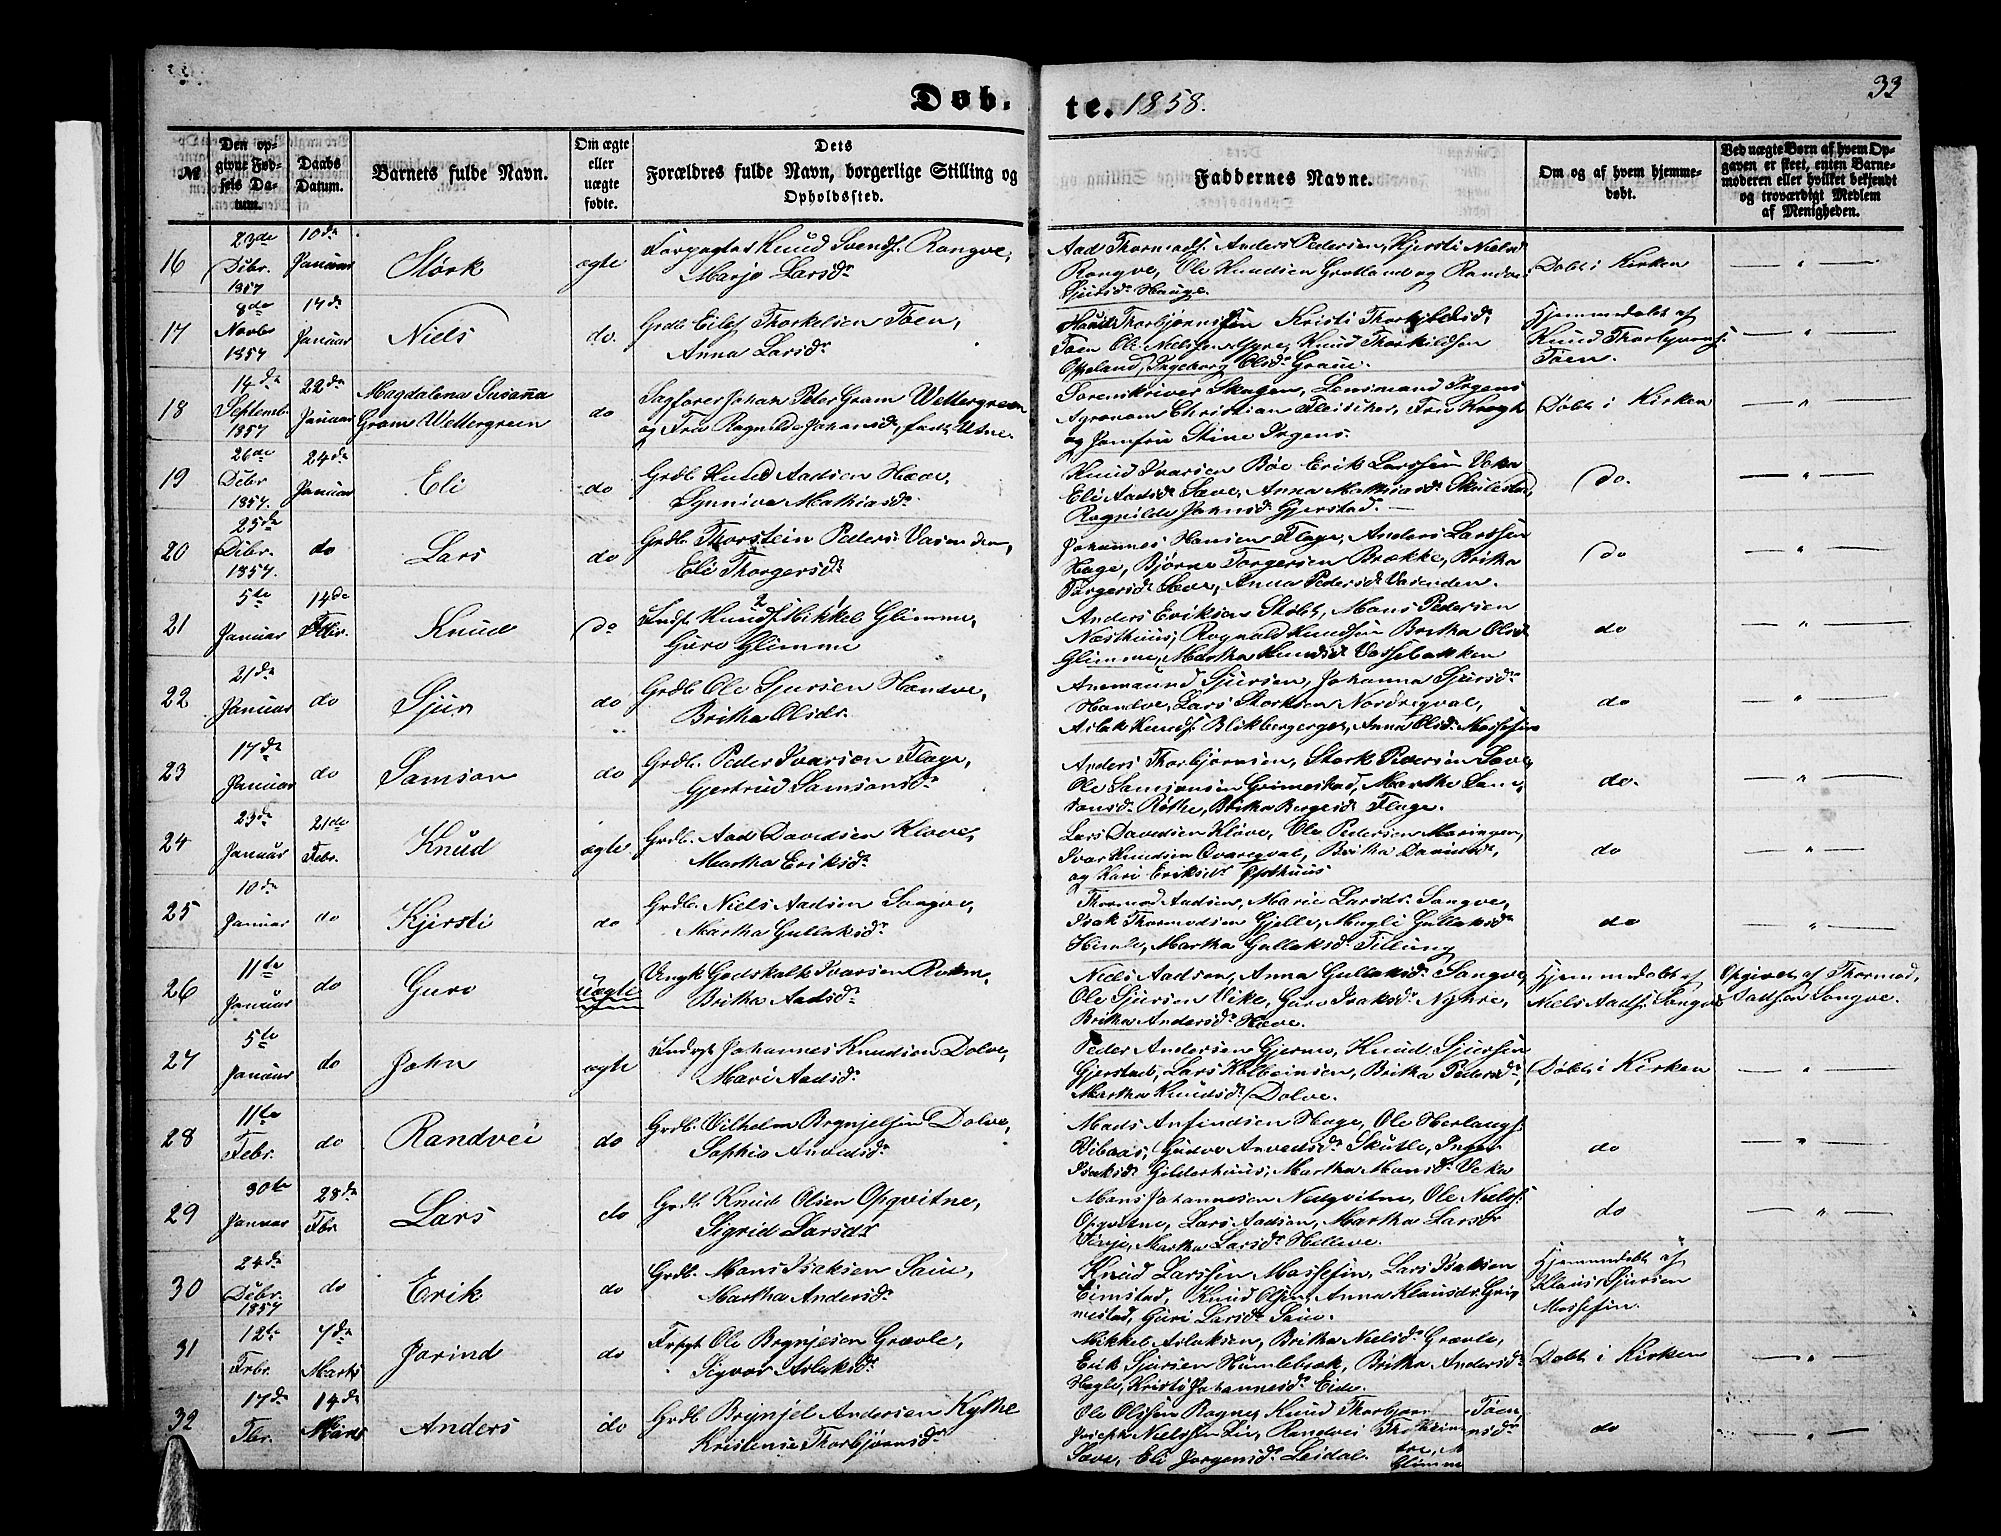 Døb.
te. 1858.
33
№
Den opgivne Fødsels Datum.
Daabs Datum.
Barnets fulde Navn.
Om ægte eller uægte fødte.
Dets Forældres fulde Navn, borgerlige Stilling og Opholdssted.
Faddernes Navne.
Om og af hvem hjemmedøbt.
Ved uægte Børn af hvem Opgaven er skeet, enten Barnemoderen eller hvilket bekjendt og troværdigt Medlem af Menigheden.
16
23de Debr. 1857
10de Januar
Størk
ægte
Forpagter Knud Svends. Rongve,
Marjo Larsdr
Aad Thormods. Anders Pedersen, Kjersti Nielsd
Rongve, Ole Knudsen Grotland og Randvei
Sjursdr Hauge.
Døbt i Kirken
17
8de Novbr 1857
17de Januar
Niels
do.
Grdb Eilef Thorkelsen Töen,
Anna Larsdr
Knud Thorbjørnssen Kristi Thorkildsd,
Töen Ole Nielssen Gjre, Knud Thorkildsen
Opeland, Ingeborg Olsdr Graue.
Hjemmedøbt af
Knud Thorbjørns.
Töen.
18
14de Septemb. 1857
22de Januar
Magdalena Susaña
Gram Wettergreen
do
Sagfører Johan Peter Gram Wettergreen
og Fru Ragnilde Johansdr, født Utne.
Sorenskriver Skagen, Lensmand Irgens
Agronom Christian Fleischer, Fru Krogh
og Jomfru Stine Irgens.
Døbt i Kirken
19
26de Debr 1857.
24de Januar
Eli
do
Grdb Knud Aadsen Hæve,
Synnive Mathiasdr
Knud Ivarsen Bøe Erik Larssen Veka
Eli Aadsdr Sæve, Anna Mathiasdr Skulestad,
Ragnilde Johnsdr Gjerstad.
do.
20
25de Debr. 1857.
do
Lars
do
Grdb. Thorstein Peders. Vasenden,
Eli Thorgersdr
Johannes Hansen Flage, Anders Larssen
Hage, Bjørne Torgersen Brække, Britha
Torgersdr Sæve, Anna Pedersdr Vasenden.
do
21
5te Januar
14de Febr.
Knud
do
Indst. Knud Mikkel Glimme,
Guro Glimme
Anders Eriksen Støbt, Mons Pedersen
Næsthuus, Rognald Knudsen Britha Olsd
Glimme, Martha Knudsdr Vossebakken
do
22
21de Januar
do
Sjur
do
Grdb Ole Sjursen Hændve,
Britha Olsdr.
Ammund Sjursen, Johanna Sjursdr
Handve, Lars Storksen Nordreqval,
Aslak Knuds. Blikberget, Anna Olsdr Mossefin
do
23
17de Januar
do
Samson
do
Grdb. Peder Ivarsen Flage,
Gjertrud Samsonsdr
Anders Thorbjørnsen, Størk Pedersen Sæve
Ole Samsonsen Grimestad, Martha Sam-
sonsdr Røthe, Britha Borgesdr Flage.
do.
24
23de Januar
21de Febr.
Knud
ægte
Grdb. Aad Davidsen Kløve,
Martha Eriksdr
Lars Davidsen Kløve, Ole Pedersen Møringen,
Ivar Knudsen Qvareqval, Britha Davidsdr,
og Kari Eriksdr Gjelhuus
do
25
10de Januar
do
Kjersti
do
Grdb. Niels Aadsen Songve,
Martha Gullaksdr
Thormod Aadsen, Marie Larsdr. Songve,
Isak Thormodsen Gjelle, Magli Gullaksdr
Himle, Martha Gullaksdr Tillung
do
26
11te Januar
do
Guro
uægte
Ungk Godskalk Ivarsen Rokne,
Britha Aadsdr
Niels Aadsen, Anna Gullaksdr Songve,
Ole Sjursen Vike, Guro Isaksdr Nyhre,
Britha Andersdr Hæve.
Hjemmedøbt af
Niels Aads. Songve
Opgivet af Thormod,
Aadsen Songve.
27
5te Januar
do
John
ægte
Indst Johannes Knudsen Dolve,
Mari Aadsdr
Peder Andersen Gjerme, Knud Sjursen
Gjerstad, Lars Kolbeinsen, Britha Pedersdr,
Martha Knudsdr Dolve.
Døbt i Kirken
28
11te Febr.
do
Randvei
do
Grdb. Vilhelm Brynjelsen Dolve,
Sophie Anvedsdr
Mads Anfindsen Hage, Ole Herlaugs.
Viboas, Gudve Anvedsdr Skutle, Inger
Isaksdr Gilderhuus, Martha Monsdr Veka
do
29
30te Januar
28de Fbr
Lars
do
Grdb Knud Olsen Opqvitne,
Sigrid Larsdr
Mons Johannesen Nedqvitne, Ole Niels.
Opqvitne, Lars Aadsen, Martha Larsdr
Vinje, Martha Larsdr Helleve.
do
30
24de Debr. 1857
do
Erik
do
Grdb. Mons Isaksen Saue,
Martha Andersdr
Knud Larssen Mossefin, Lars Isaksen
Eimstad, Knud Olsen, Anna Klausdr. Gri-
mestad, Guri Larsdr Saue.
Hjemmedøbt af
Klaus Sjursen
Mossefin.
31
12te Febr.
7de Marts
Jorind
do
Frpgt Ole Brynjelsen Grævle,
Sigvor Aslaksdr
Mikkel Aslaksen, Britha Nielsdr Grævle,
Erik Sjursen Humlebræk, Britha Andersdr
Hegle, Kristi Johannesdr Eide.
Døbt i Kirken
32
17de Febr.
14de Marts
Anders
do
Grdb Brynjel Andersen Kythe
Kristense Thorbjørnsdr
Ole Olssen Rogne, Knud Thorbjørn Töen,
Joseph Nielssen Lie, Randvei
Sæve, Eli Jorgensdr Leidal. Glimme
do